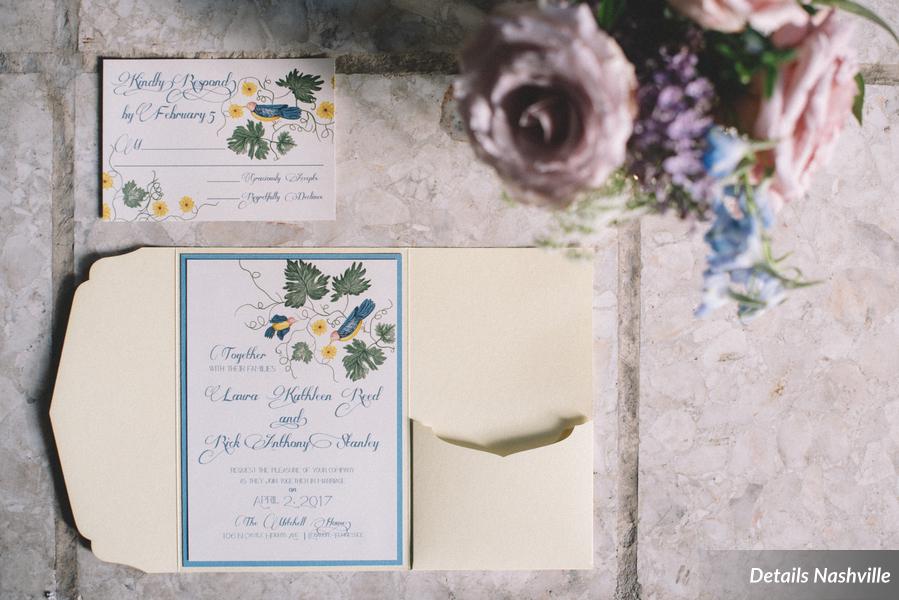 Kindly Respond
by February 5
M
Graciously Accepts
Regretfully Declines
Together
WITH THEIR FAMILIES
Laura Kathleen Reed
and
Rick Anthony Stanley
REQUEST THE PLEASURE OF YOUR COMPANY
AS THEY JOIN TOGETHER IN MARRIAGE
on
APRIL 2, 2017
The Mitchell House
106 N CASTLE HEIGHTS AVE | LEBANON, TENNESSEE
Details Nashville